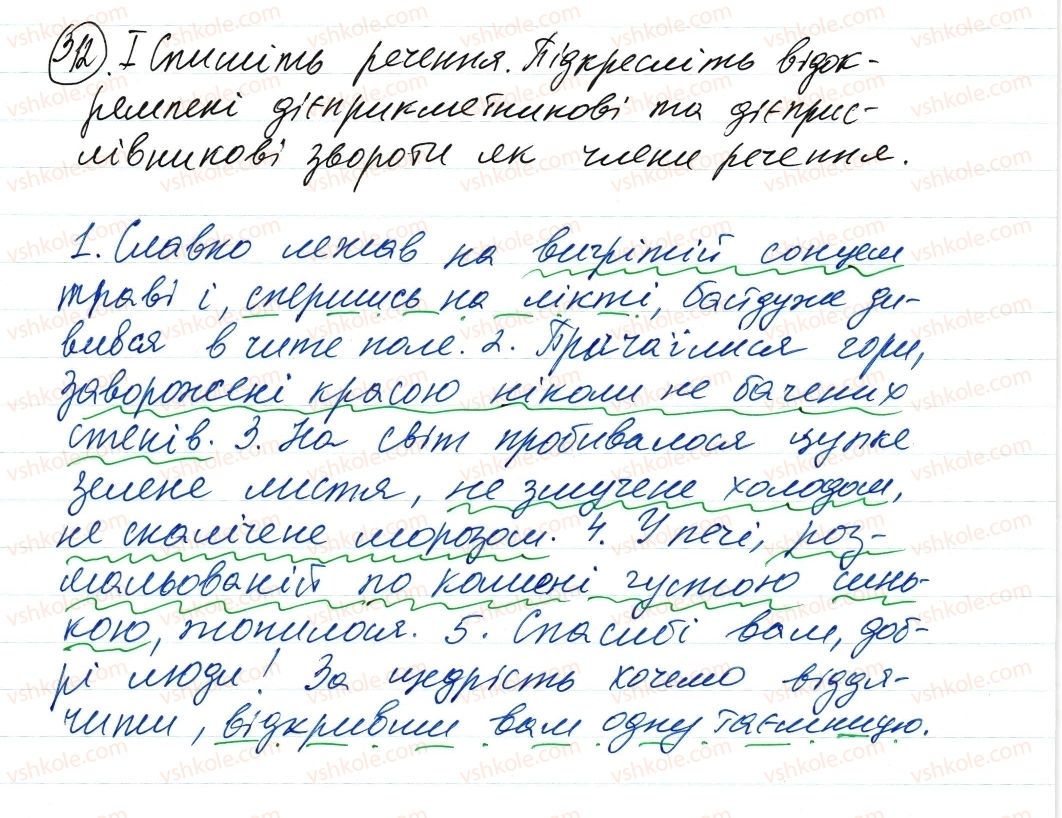 312. I Спишіть речення. Підкресліть відок-
ремлені дієприкметникові та дієприс-
лівникові звороти як члени речення.
1. Славко лежав на вигрітій сонцем
траві і, спершись на лікті, байдуже ди-
вився в чисте поле. 2. Причаїлися гори,
заворожені красою ніколи не бачених
степів. 3. На світ пробивалося цупке
зелене листя, не змучене холодом,
не скалічене морозом. 4. У печі, роз-
мальованій по комені густою синь-
кою, топилося. 5. Спасибі вам, доб-
рі люди! За щедрість хочемо віддя-
чити, відкривши вам одну таємницю.